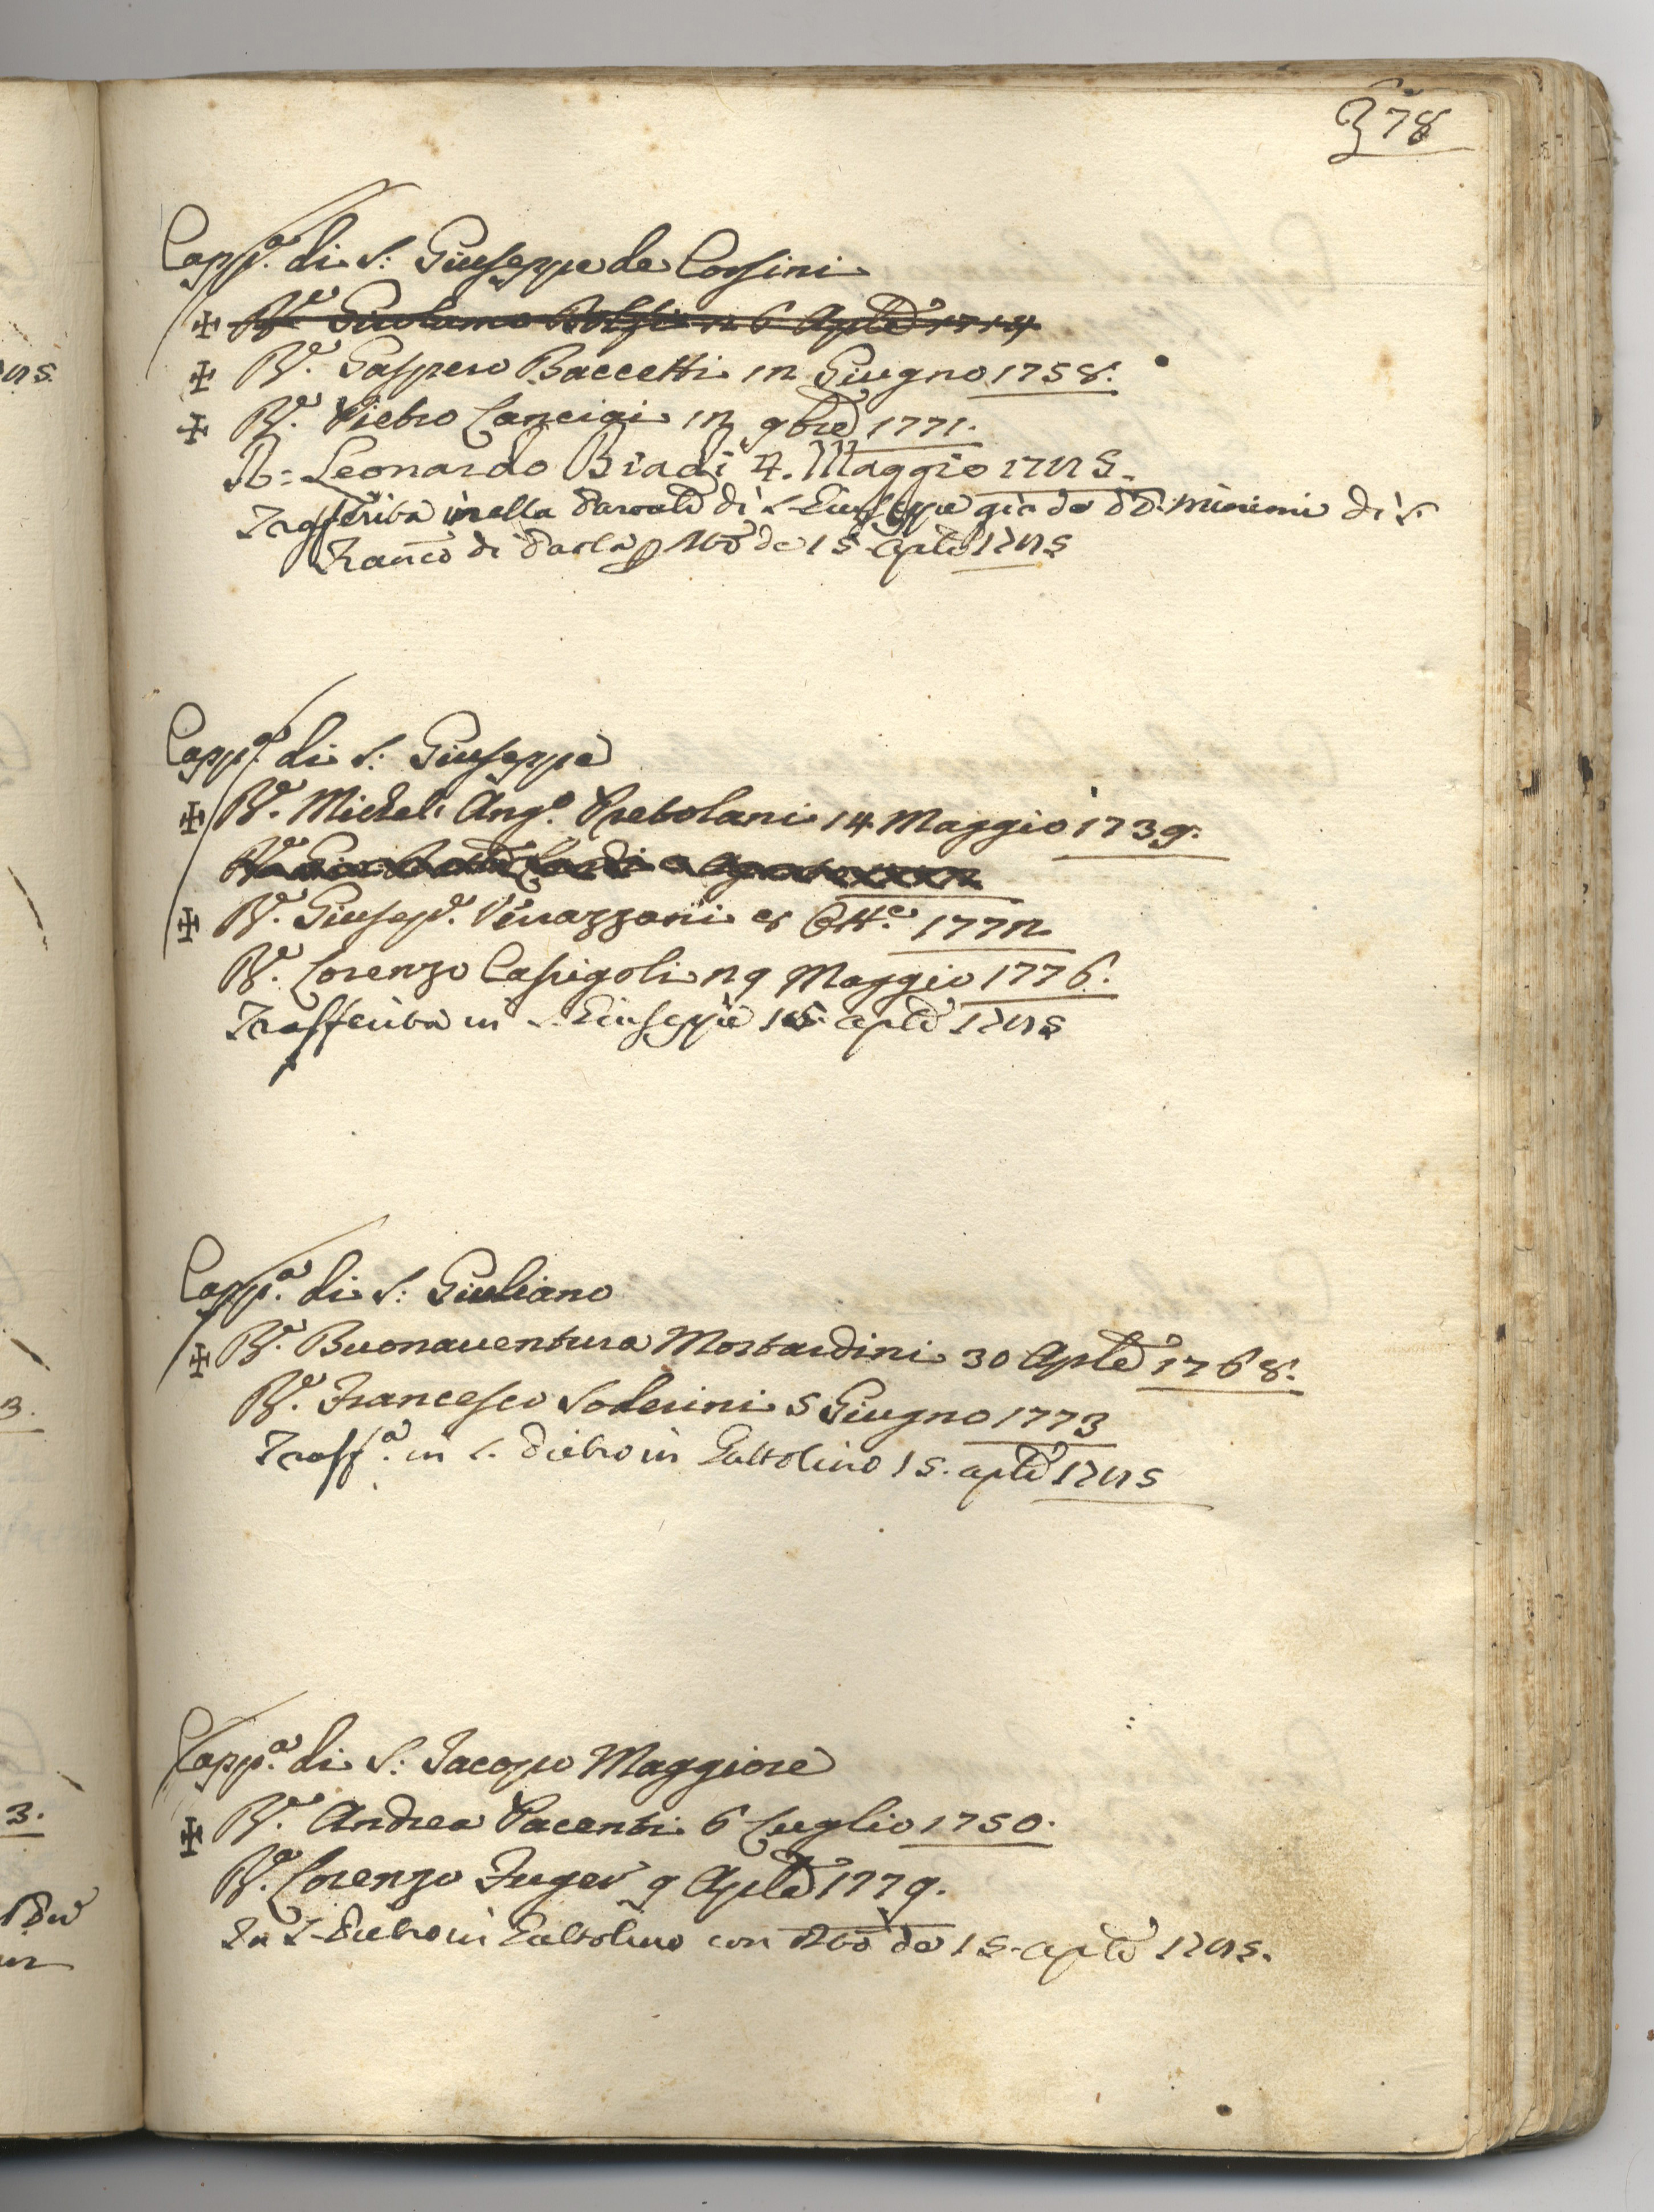 378
Capp.a di S: Giuseppe de Corsini
✠ R.e Girolamo 6 Aple 1714
✠ R.e Gaspero Baccetti in Giugno 1758.
✠ R.e Pietro Lanciai in 9bre 1771.
R: Leonardo Biadi 4. Maggio 1785.
Trasferita nella di S. Giuseppe già de PP. Minimi di S.
Franco di Paola p de 15 Aple 1785
Capp.a di S: Giuseppe
✠ R.e Michel Ang.o Pretolani 14 Maggio 1739.
R.e
✠ R.e Giusep.e Vinazzani 8 Ott.e 1772
R.e Lorenzo Casigoli 29 Maggio 1776.
Trasferita in S. Giuseppe 15 aple 1785
Capp.a di S: Giuliano
✠ R.e Buonaventura Mostardini 30 Aple 1768.
R.e Francesco Soderini 5 Giugno 1773
Trasf.a in S. Pietro in Gattolino 15. aple 1785
Capp.a di S: Jacopo Maggiore
✠ R.e Andrea Pacenti 6 Luglio 1750.
R.e Lorenzo Fuger 9 Aple 1779.
In S. Pietro in Gattolino con de 15. aple 1785.
3.
3.